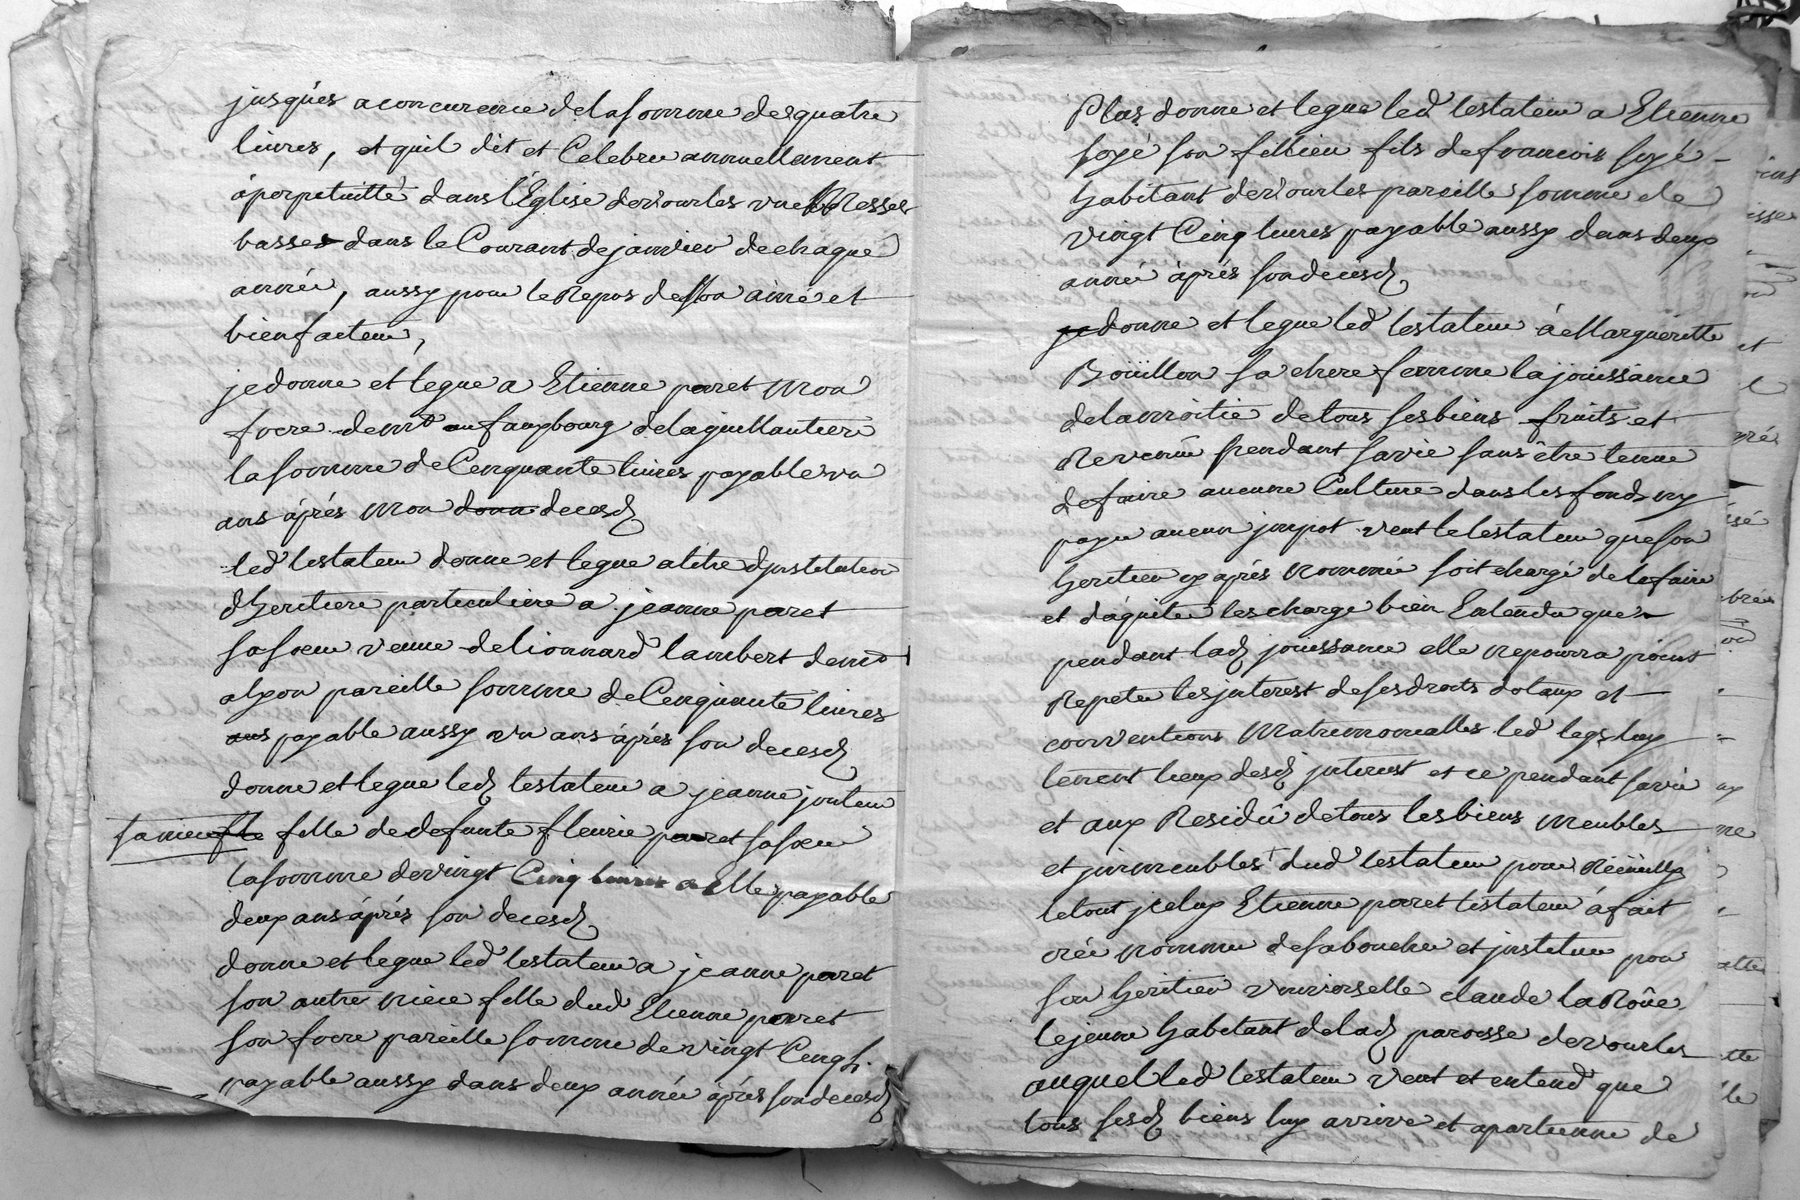 jusques a concurence de la somme de quatre
livres, et quil dit et Celebre annuellement
à perpetuitté dans l'Eglise de vourles une Messes
basses dans le Courant de janvier de chaque
année, aussy pour le Repos de son ame et
bienfacteur,
je donne et legue a Etienne poret mon
frere dem^t au fauxbourg de la guillantiere
la somme de Cenquante livres payable un
ans aprés mon donn decesd
led testateur donne et legue a titre d'jnstitution
d'heritiere particuliere a jeanne poret
sa sœur veuve de lionnard lambert dem^t
a lyon pareille somme de Cenquante livres
ans payable aussy un ans àprés son decesd
donne et legue led testateur a jeanne jouteur
sa niece fille de defunte fleurie poret sa sœur
la somme de vingt Cinq livres a Elle payable
deux ans àprés son decesd
donne et legue led testateur a jeanne poret
son autre niece fille dud Etienne poret
son frere pareille somme de vingt Cenq
payable aussy dans deux année àprés son decesd
Plus donne et legue led testateur a Etienne
foyé son fillieu fils de francois foyé
habitant de vourles pareille somme de
vingt Cinq livres payable aussy dans deux
année àprés son decesd
je donne et legue led testateur à Marguéritte
Boüillon sa chere femme la joüissance
de la moitié de tous ses biens fruits et
Revenu pendant sa vie sans être tenue
de faire aucune Culture dans les fonds ny
payer aucun jmpot veut le testateur que son
heritier cy àprés nommé soit chargé de le faire
et d'àquiter les charge bien Entendu que
pendant lad jouissance elle ne pourra point
Repeter les jnterest de ses droits dotaux et
conventions Matrimonialles led legs luy
tenant lieux desd jnterest et ce pendant sa vie
et aux Residû de tous les biens meubles
et jmmeubles dud testateur pour Recüeilly
le tout jceluy Etienne poret testateur à fait
crée nommer de sa bouche et jnstituer pour
son heritier universelle claude la Roûe
le jeune habitant de lad paroisse de vourles
auquel led testateur veut et entend que
tous sesd biens luy arrive et apartienne de